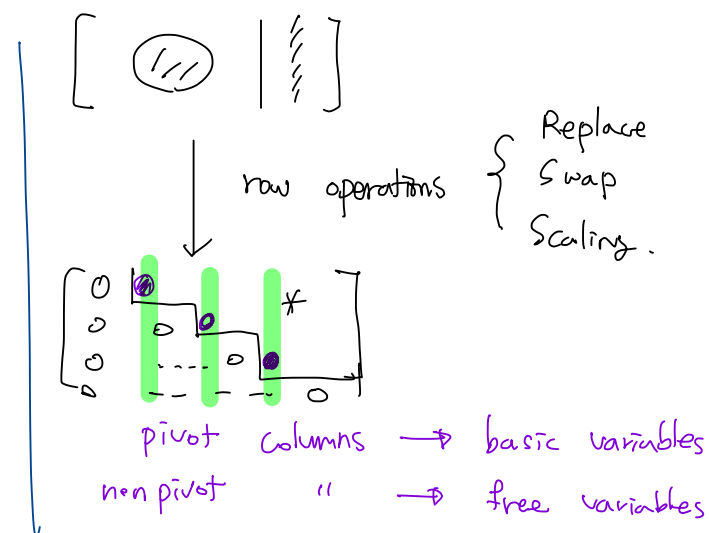 Replace
row operations { Swap
Scaling.
0
0 0
0 ---- 0 *
0 - - - - 0
pivot columns → basic variables
non pivot " → free variables